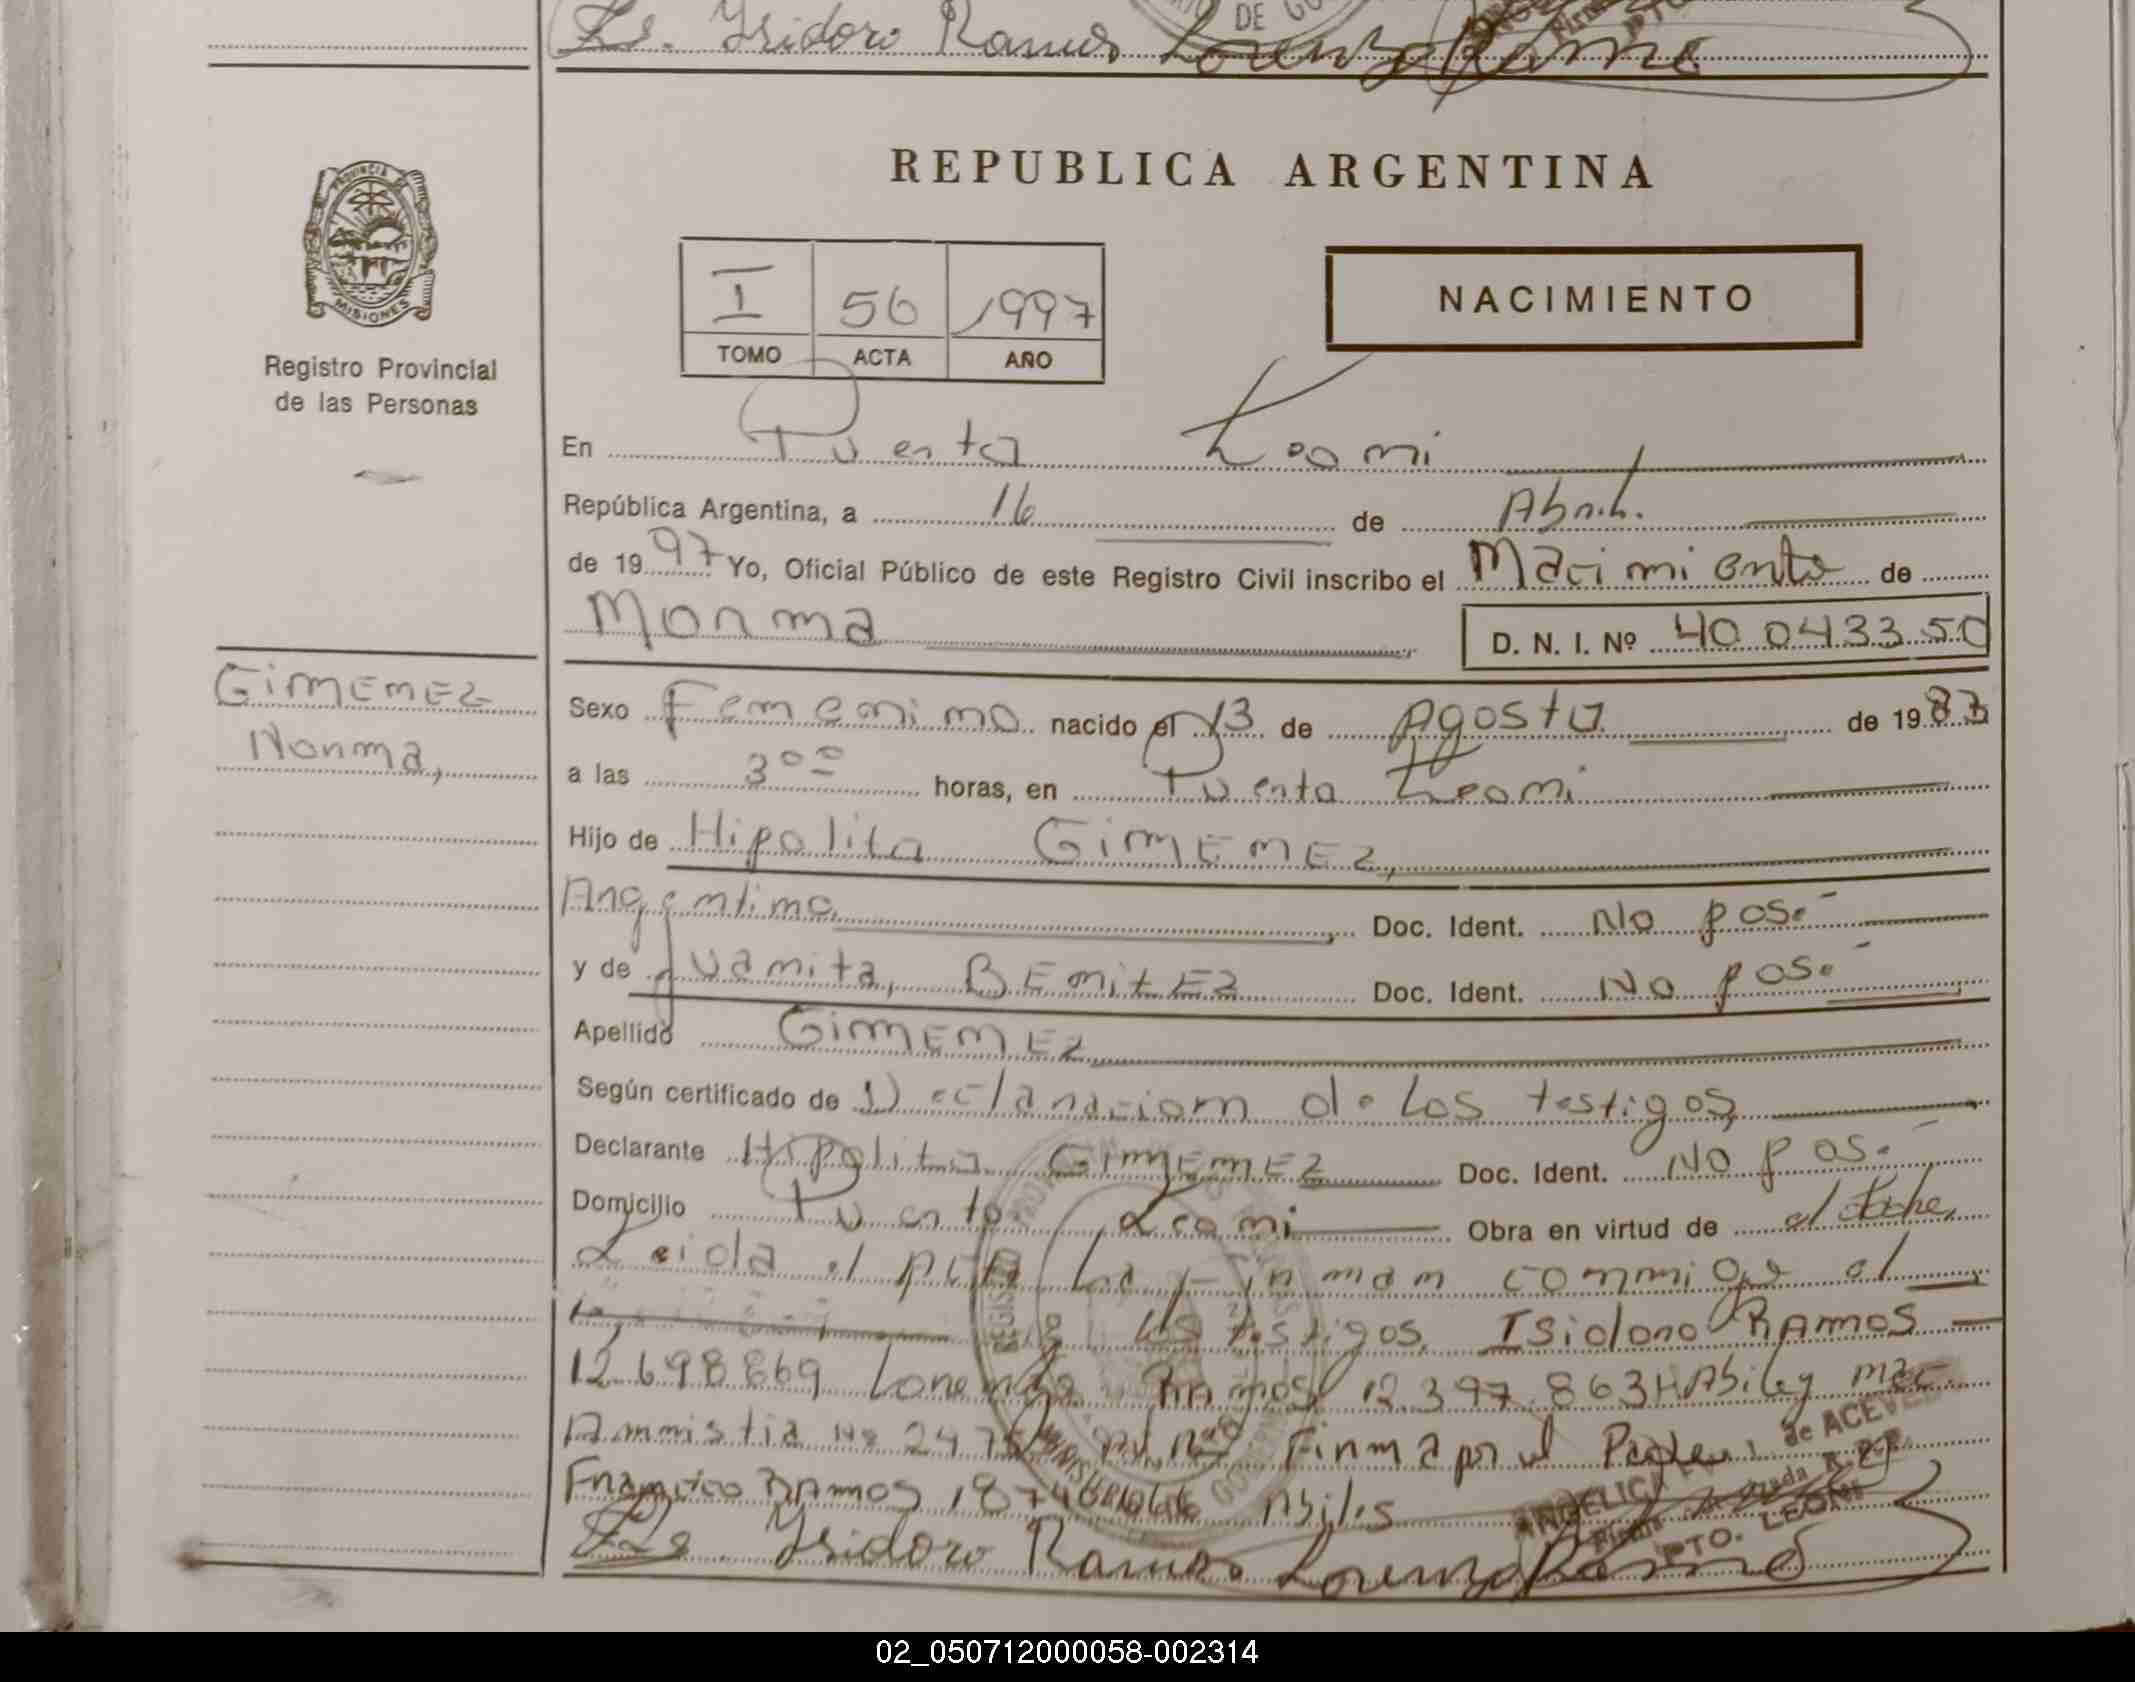 Fs. Isidoro Ramos Lorenzo Ramos
DE
PROVINCIA DE
MISIONES
Registro Provincial
de las Personas
REPUBLICA ARGENTINA
I 56 1997
TOMO ACTA AÑO
NACIMIENTO
En Puerto Leoni
República Argentina, a 16 de Abril.
de 1997 Yo, Oficial Público de este Registro Civil inscribo el Nacimiento de
Norma
D. N. I. Nº 40 043350
GIMENEZ
Norma,
Sexo Femenino nacido el 13 de Agosto de 1983
a las 3 00 horas, en Puerto Leoni
Hijo de Hipolito GIMENEZ,
Argentino Doc. Ident. No pose
y de Juanita, BENITEZ Doc. Ident. No pose
Apellido GIMENEZ
Según certificado de Declaracion de Los testigos,
Declarante Hipolito GIMENEZ Doc. Ident. No pose
Domicilio Puerto Leoni Obra en virtud de
Leida el Acta La Firman conmigo el
los testigos, Isidoro RAMOS
12.698869 Lorenzo Ramos 12.397.863 HAbiles
Amnistia Firma por el Padre
Francisco RAMOS Abiles
de ACEVE
ANGELICA
PTO. LEONI
Isidoro Ramos Lorenzo Ramos
02_050712000058-002314